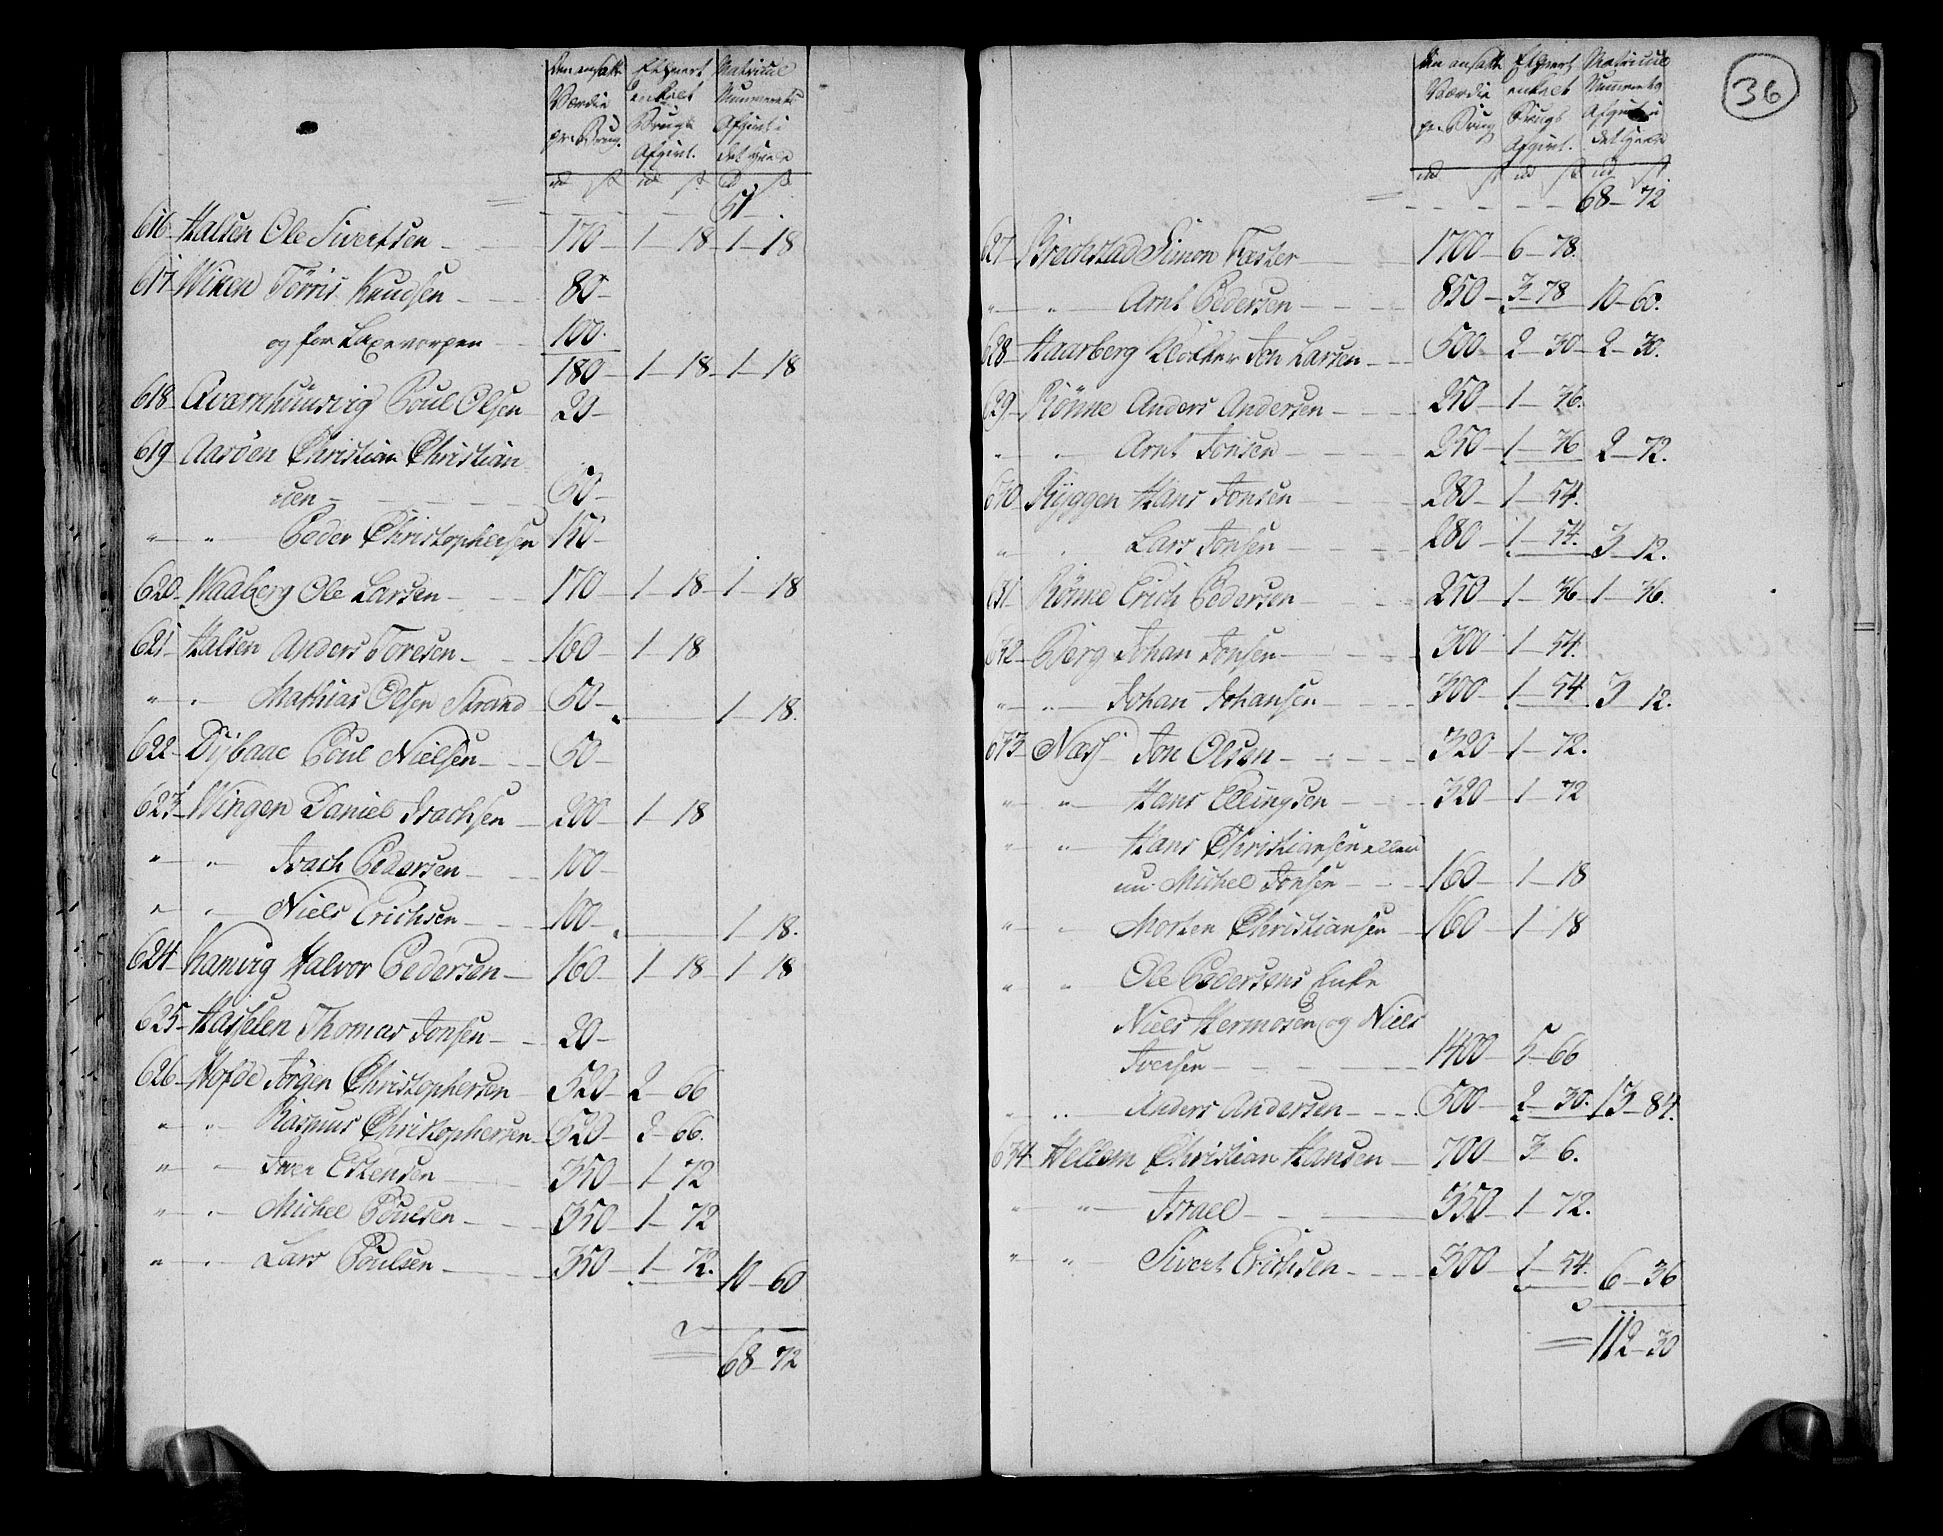 Den ansatte Værdie pr. Brug. | Ethvert enkelt Brugs Afgivt. | Matricul Nummerets Afgivt i det heele
rd s | rd s | rd s
51 -
616 - Halsen Ole Sivertsen - 170 - 1 - 18 - 1 - 18
617 - Wiken Törris Knudsen - 80 -
og for Laxevorpen - 100.
180 - 1 - 18 - 1 - 18
618 - Qvarnhuusvig Poul Olsen 20 -
619 - Aaröen Christian Christian
sen - 50 -
" " Peder Christophersen 150 -
620 - Waaberg Ole Larsen - 170 - 1 - 18 - 1 - 18
621 - Halsen Anders Toresen - 160 - 1 - 18
" " Mathias Olsen Strand 50 - 1 - 18.
622 - Dybaae Poul Nielsen - 50 -
623 - Wingen Daniel Isachsen - 200 - 1 - 18
" " Isach Pedersen - 100 -
" " Niels Erichsen - 100 - 1 - 18.
624 Hamvig Halvor Pedersen - 160 - 1 - 18 - 1 - 18
625 - Hasselen Thomas Jonsen - 20 -
626 - Hofde Jörgen Christophersen 520 - 2 - 66
" " Rasmus Christophersen 520 - 2 - 66.
" " Iver Estensen - 350 - 1 - 72
" " Michel Poulsen - 350 - 1 - 72
" " Lars Poulsen - 350 - 1 - 72. 10 - 60
68 - 72
36
Den ansatte Værdie pr. Brug | Ethvert enkelt Brugs Afgivt. | Matricul Nummerets Afgivt i det heele
rd s | rd s | rd s
68 - 72
627 - Brechstad Simon Fæster - 1700 - 6 - 78.
" " Arnt Pedersen - 850 - 3 - 78 10 - 60.
628 - Haarberg Klokker Jon Larsen - 500 - 2 - 30 - 2 - 30.
629 - Rönne Anders Andersen - 250 - 1 - 36.
" " Arnt Jonsen - 250 - 1 - 36 2 - 72.
630 - Ryggen Hans Jonsen - 280 - 1 - 54.
" " Lars Jonsen - 280 - 1 - 54. 3 - 12.
631 - Rönne Erich Pedersen - 250 - 1 - 36 - 1 - 36.
632 - Berg Johan Jonsen - 300 - 1 - 54.
" " Johan Johansen - 300 - 1 - 54. 3 - 12.
633 - Næss Jon Olsen - 320 - 1 - 72.
" " Hans Ellingsen - 320 - 1 - 72
" " Hans Christiansen eller
nu Michel Jonsen - 160 - 1 - 18
" " Morten Christiansen - 160 - 1 - 18
" " Ole Pedersens Enke
Niels Hermosen og Niels
Iversen - 1400 - 5 - 66
" " Anders Andersen - 500 - 2 - 30. 13 - 84.
634 - Hellem Christian Hansen - 700 - 3 - 6.
" " Israel - 350 - 1 - 72.
" " Sivert Erichsen - 300 - 1 - 54. 6 - 36
112 - 30